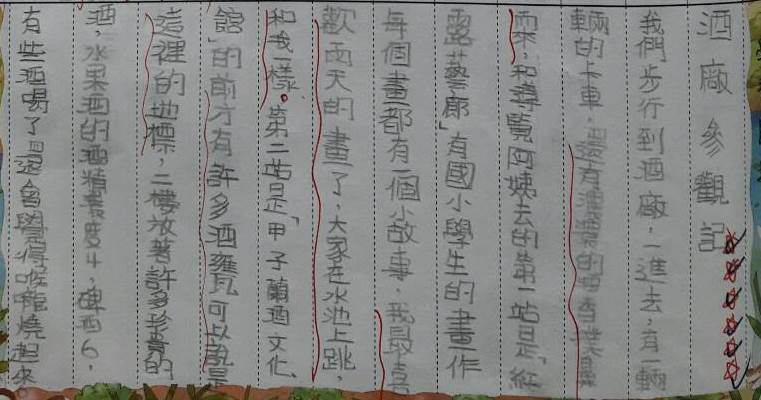 酒廠參觀記
我們步行到酒廠,一進去,有一輛
輛的卡車,還有濃濃的酒香撲鼻
而來,和導覽阿姨去的第一站是「紅
露藝廊」有國小學生的畫作
每個畫都有一個小故事,我最喜
歡雨天的畫了,大家在水池上跳,
和我一樣。第二站是「甲子蘭酒文化
館」的前方有許多酒甕,可以說是
這裡的地標,二樓放著許多珍貴的
酒,水果酒的酒精濃度4,啤酒6,
有些酒喝了還會覺得喉嚨燒起來